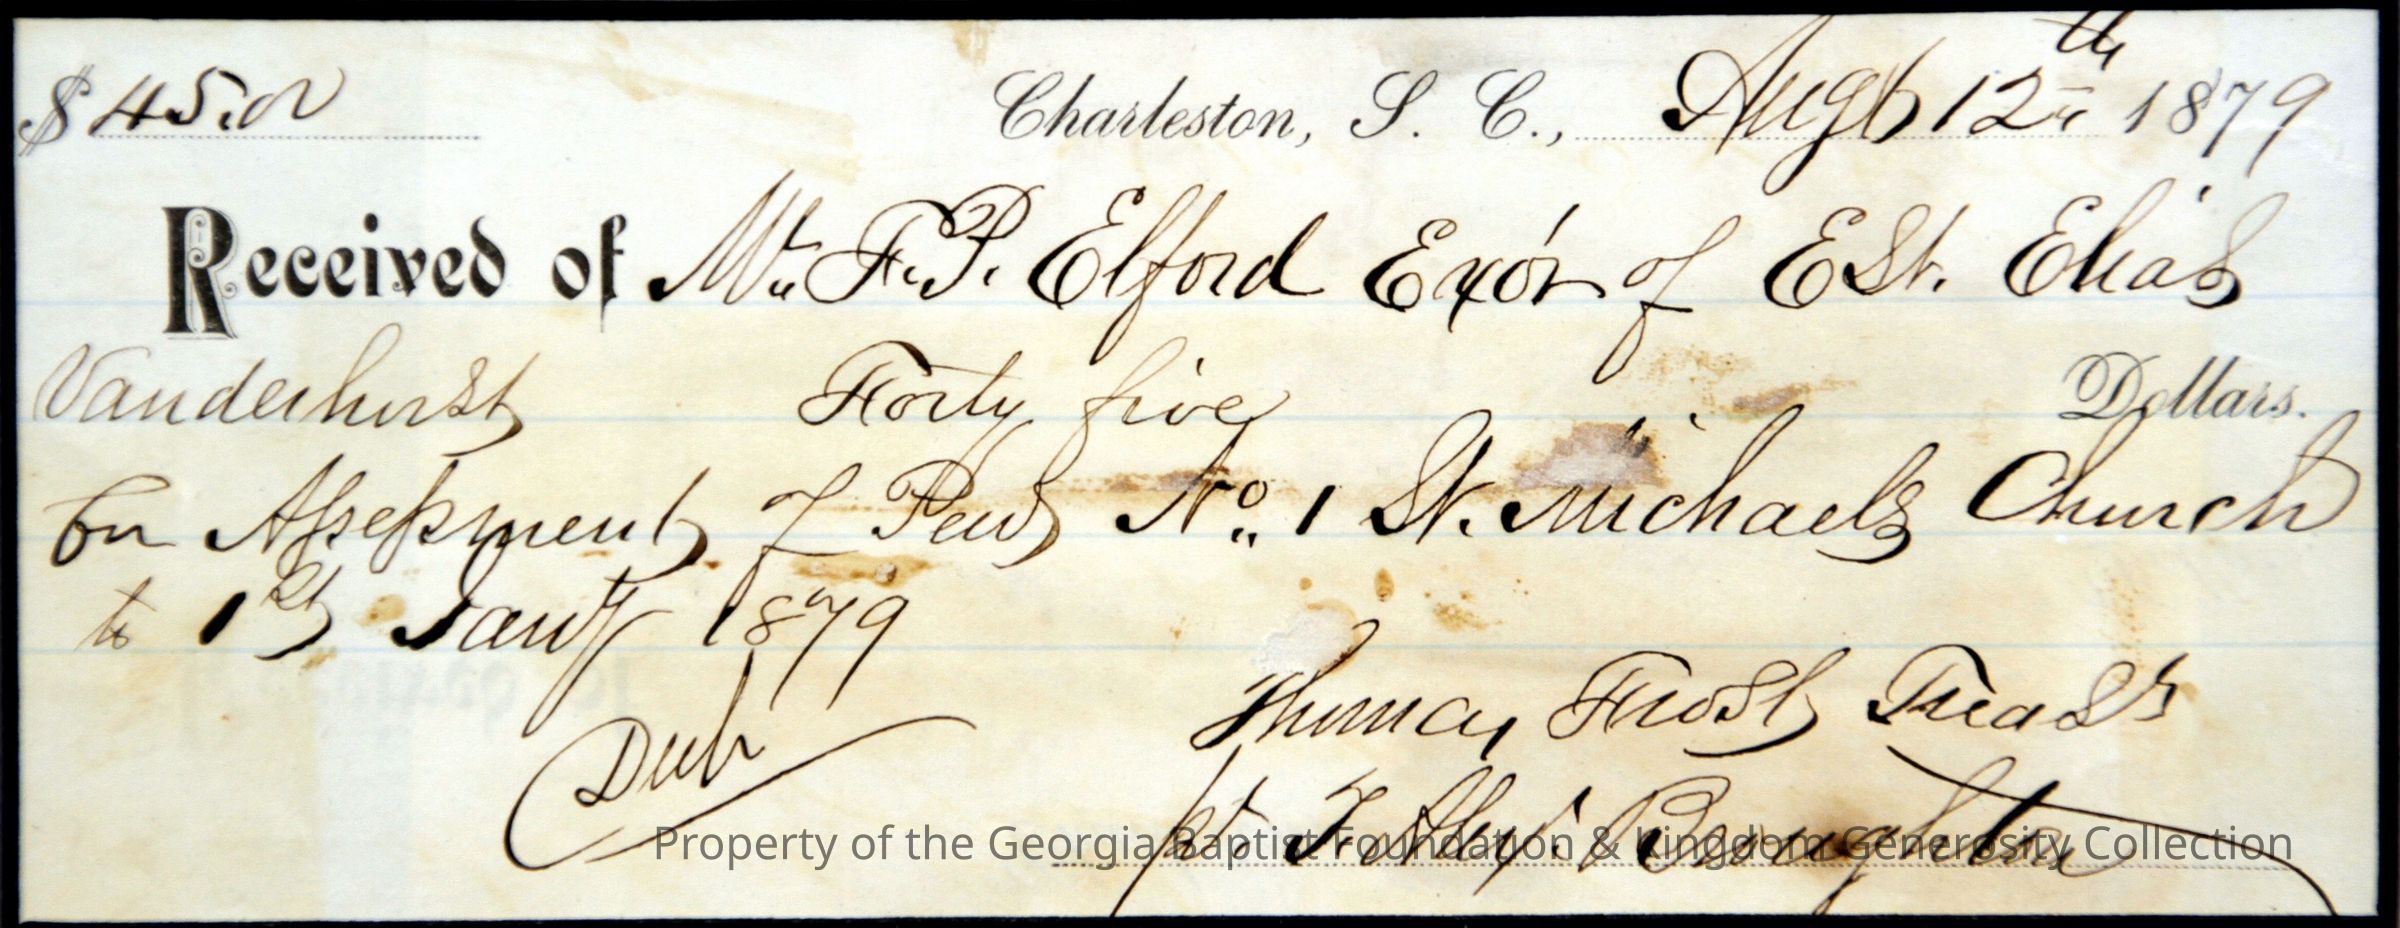 $45.00 Charleston, S. C., Augt 12th 1879
Received of Mr. F. P. Elford Exo'r of Est. Elias
Vanderhorst Forty five Dollars.
for Assessment of Pew No. 1 St. Michaels Church
to 1st Jany 1879
Thomas Frost Treasr
Dub
pr Broughton
Property of the Georgia Baptist Foundation & Kingdom Generosity Collection